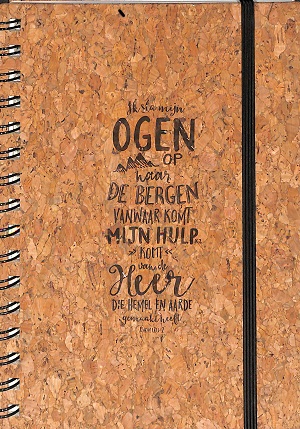 Ik sla mijn
OGEN
OP
naar
DE BERGEN
VANWAAR KOMT
MIJN HULP.
KOMT
van de
Heer
DIE HEMEL EN AARDE
gemaakt heeft